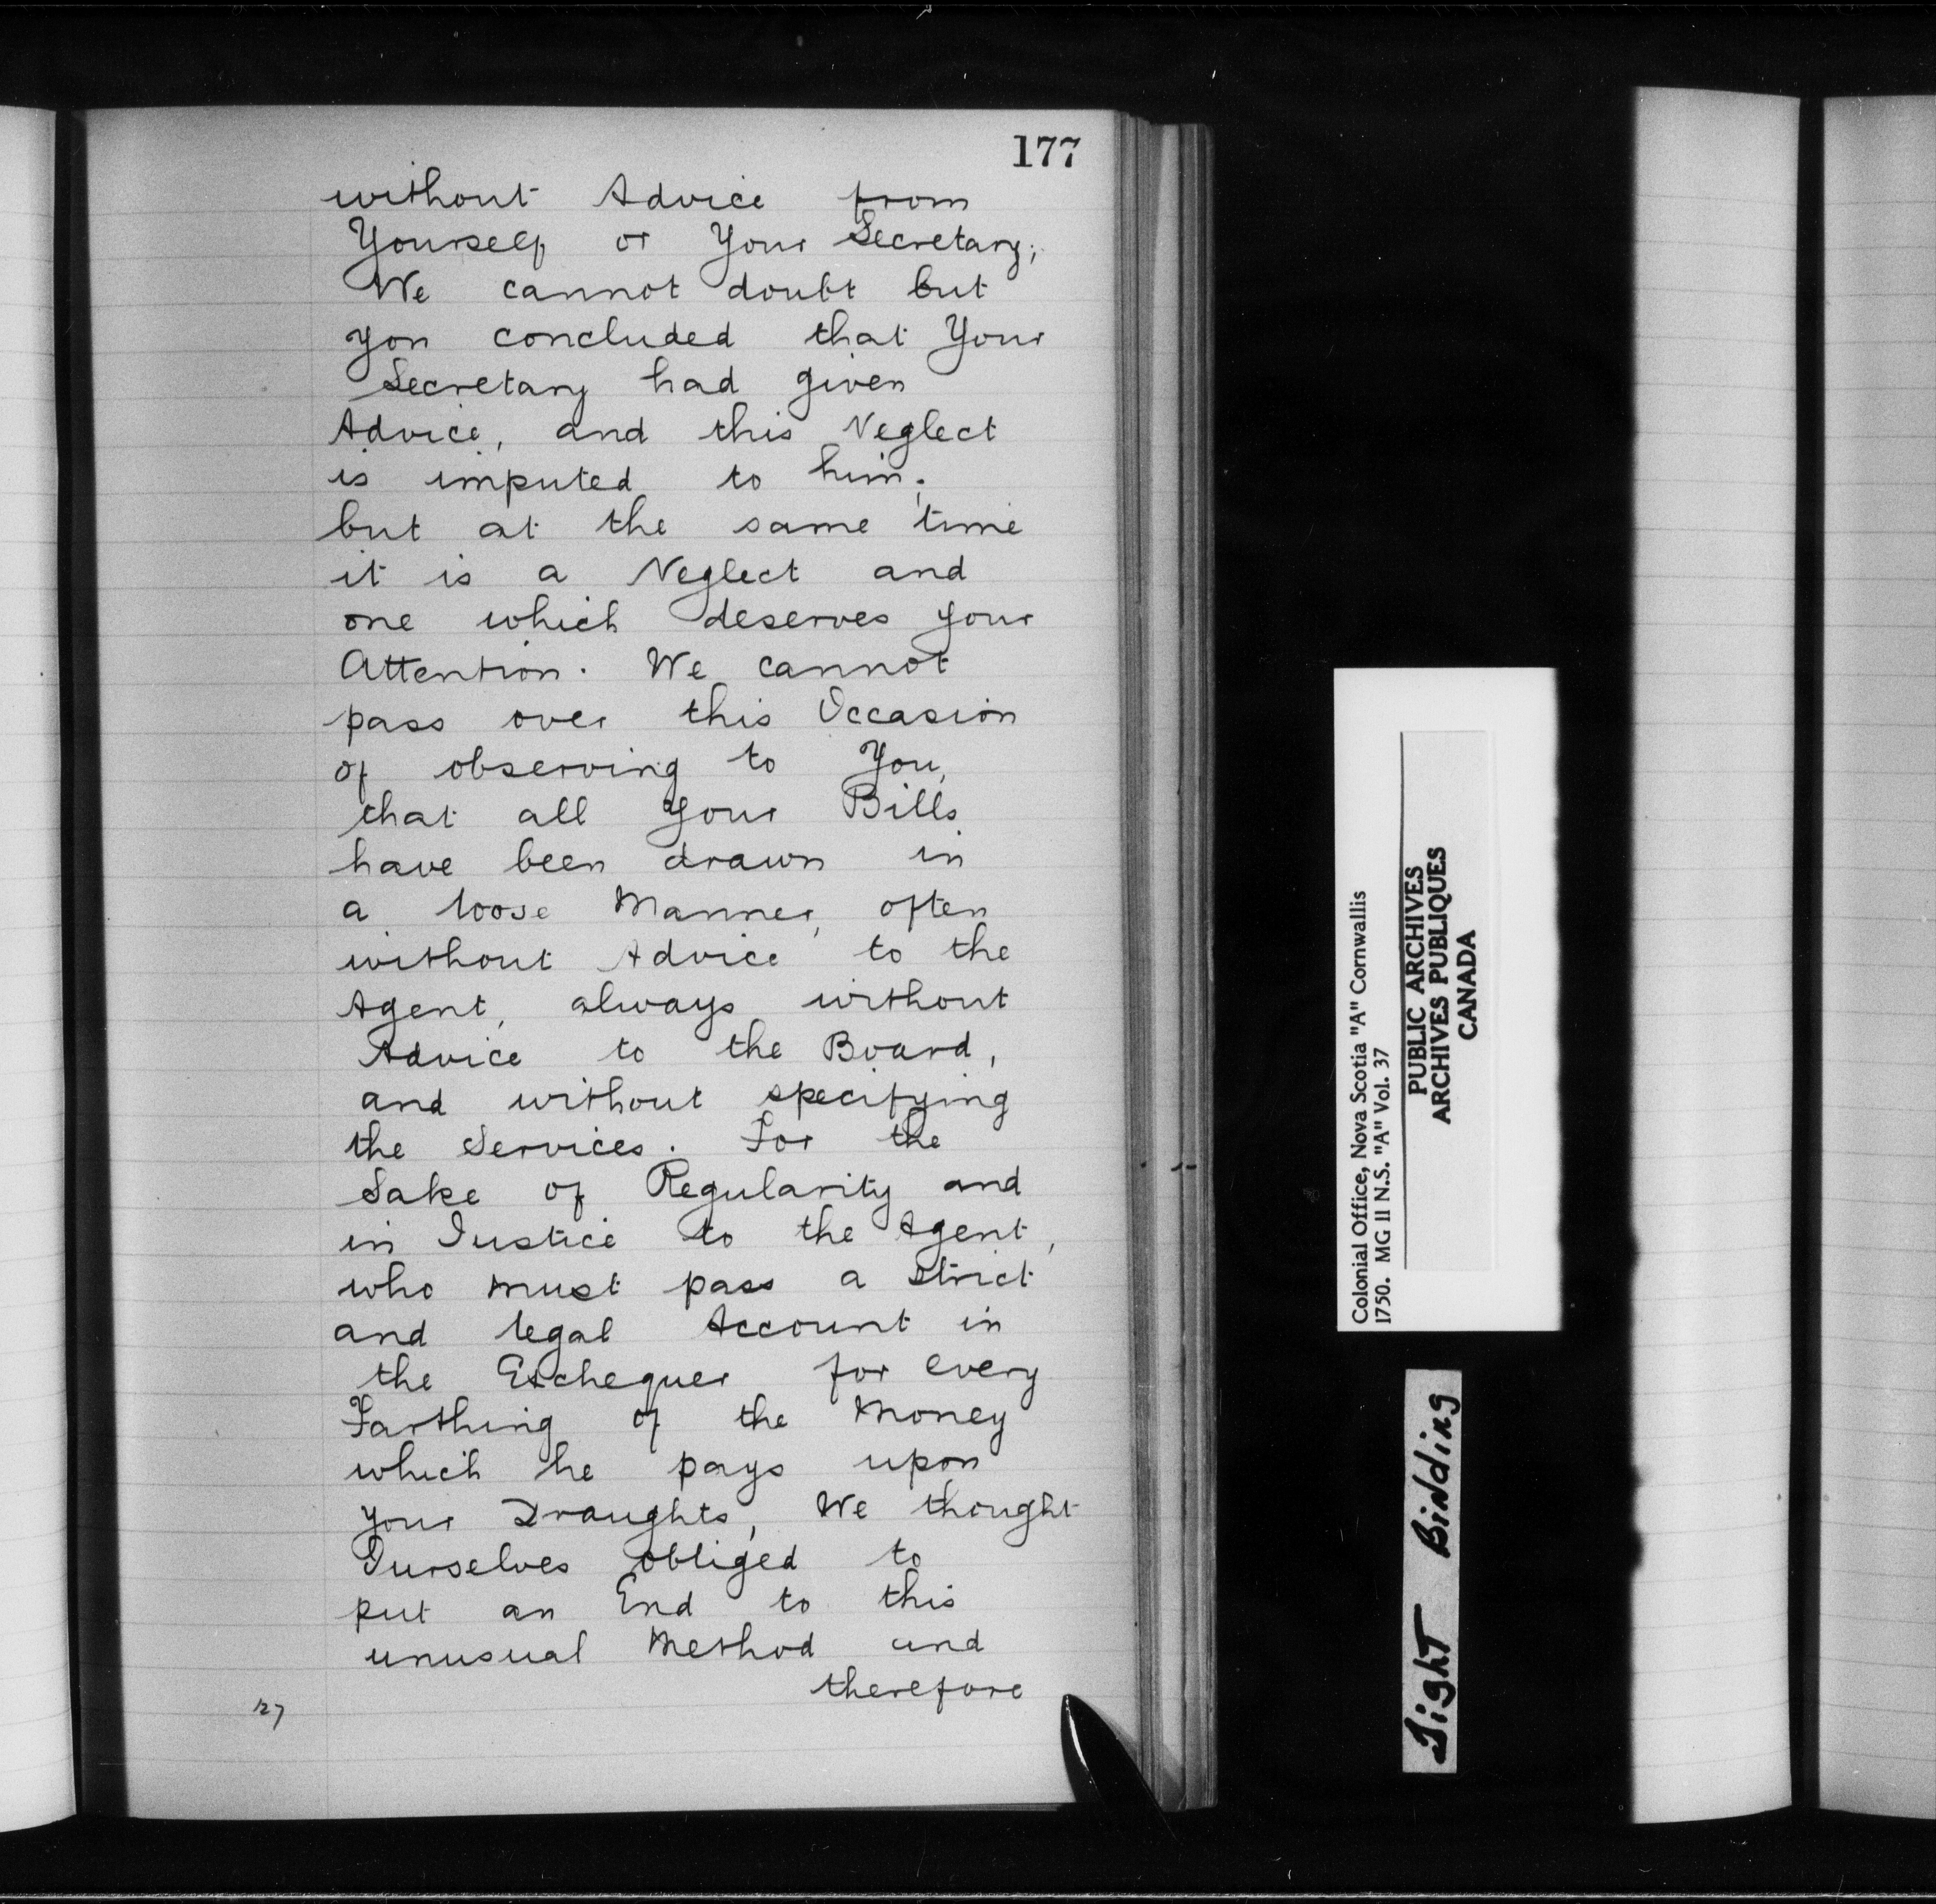 177
without Advice from
Yourself or Your Secretary;
We cannot doubt but
you concluded that Your
Secretary had given
Advice, and this Neglect
is imputed to him;
but at the same time
it is a Neglect and
one which deserves your
Attention. We cannot
pass over this Occasion
of observing to You,
that all your Bills
have been drawn in
a loose Manner, often
without Advice to the
Agent, always without
Advice to the Board,
and without specifying
the Services. For the
Sake of Regularity and
in Justice to the Agent,
who must pass a strict
and legal Account in
the Exchequer for every
Farthing of the Money
which he pays upon
your Draughts, We thought
Ourselves obliged to
put an End to this
unusual Method and
therefore
127
Colonial Office, Nova Scotia "A" Cornwallis
1750. MG 11 N.S. "A" Vol. 37
PUBLIC ARCHIVES
ARCHIVES PUBLIQUES
CANADA
Tight Binding